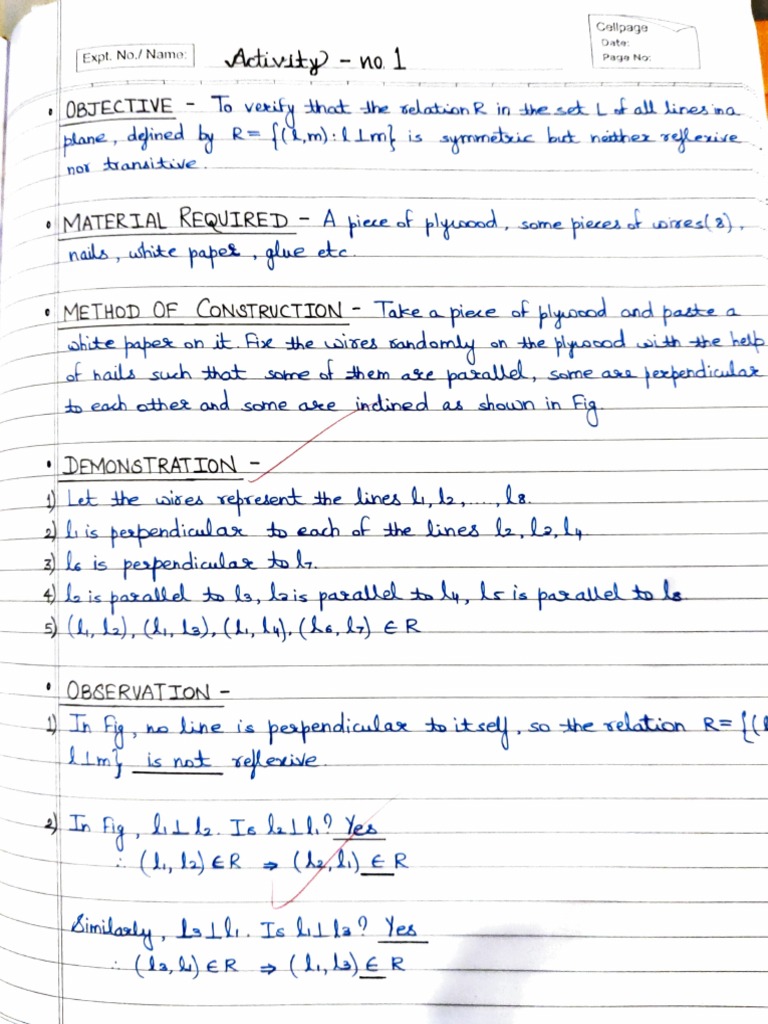 Cellpage
Expt. No./ Name:
Activity - no. 1
Date:
Page No:
• OBJECTIVE - To verify that the relation R in the set L of all lines in a
plane, defined by R = {(l,m) : l ⊥ m} is symmetric but neither reflexive
nor transitive.
• MATERIAL REQUIRED - A piece of plywood, some pieces of wires (8),
nails, white paper, glue etc.
• METHOD OF CONSTRUCTION - Take a piece of plywood and paste a
white paper on it. Fix the wires randomly on the plywood with the help
of nails such that some of them are parallel, some are perpendicular
to each other and some are inclined as shown in Fig.
• DEMONSTRATION -
1) Let the wires represent the lines l₁, l₂, ...., l₈.
2) l₁ is perpendicular to each of the lines l₂, l₃, l₄
3) l₆ is perpendicular to l₇.
4) l₂ is parallel to l₃, l₃ is parallel to l₄, l₅ is parallel to l₈
5) (l₁, l₂), (l₁, l₃), (l₁, l₄), (l₆, l₇) ∈ R
• OBSERVATION -
1) In Fig, no line is perpendicular to itself, so the relation R = {(l
l ⊥ m} is not reflexive.
2) In Fig, l₁ ⊥ l₂. Is l₂ ⊥ l₁? Yes
∴ (l₁, l₂) ∈ R ⇒ (l₂, l₁) ∈ R
Similarly, l₃ ⊥ l₁. Is l₁ ⊥ l₃? Yes
∴ (l₃, l₁) ∈ R ⇒ (l₁, l₃) ∈ R